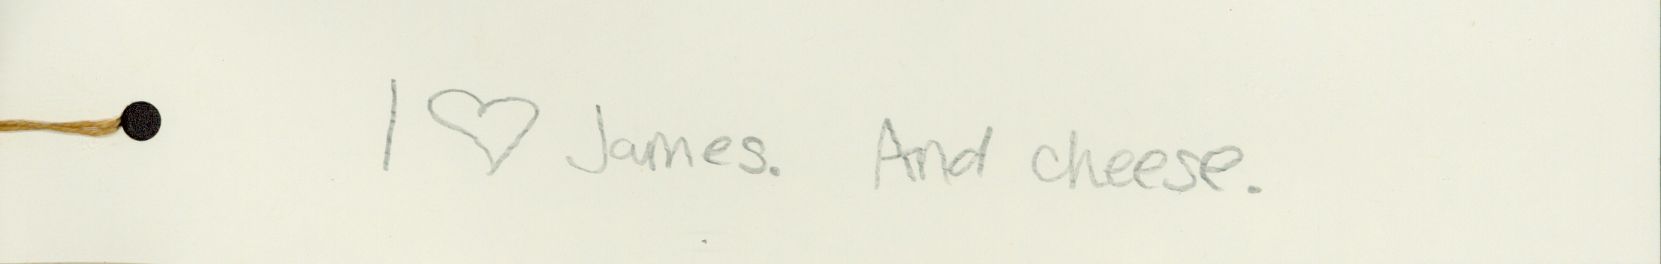 I ♡ James. And cheese.